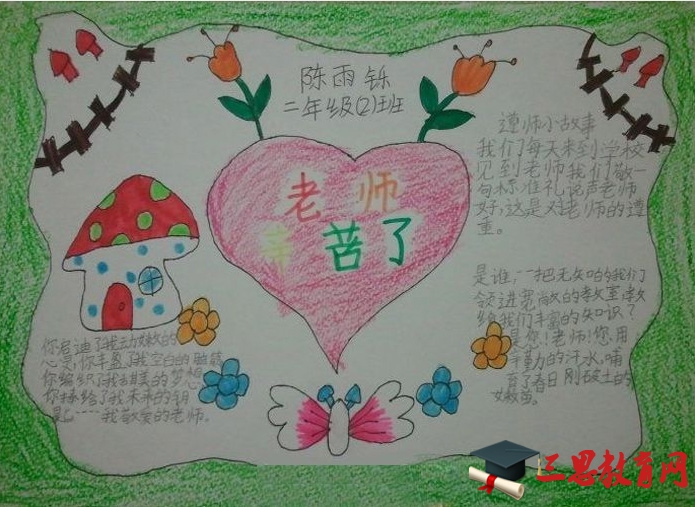 陈雨铄
二年级(2)班
老师
辛苦了
遵师小故事
我们每天来到学校
见到老师我们敬一
句标准礼说声老师
好,这是对老师的遵
重。
是谁,一把无知的我们
领进宽敞的教室教
给我们丰富的知识?
是您!老师!您用
辛勤的汗水。哺
育了春日刚破土的
嫩苗。
你启迪了我幼嫩的
心灵,你丰盈了我空白的脑筋
你编织了我甜美的梦想
你授给了我未来的钥
匙……我敬爱的老师。
三思教育网